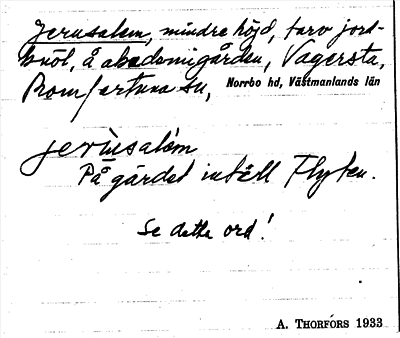 Jerusalem, mindre höjd, torv jord-
knöl, å akademigården, Vagersta,
Romfartuna sn, Norrbo hd, Västmanlands län
jerùsaläm
På gärdet intill Flyten.
Se detta ord!
A. THORFÓRS 1933